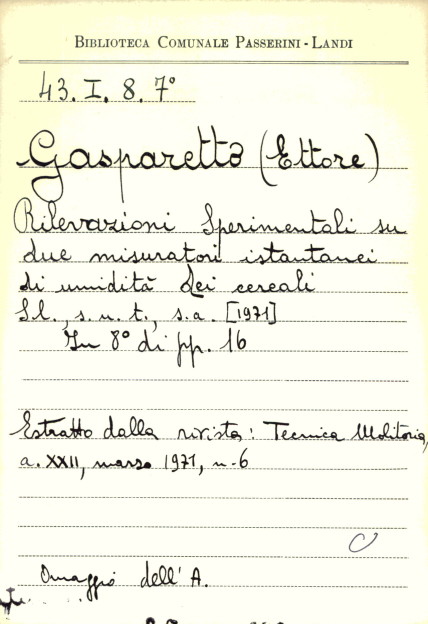 BIBLIOTECA COMUNALE PASSERINI - LANDI
43. I. 8. 7°
Gasparetto (Ettore)
Rilevazioni Sperimentali su
due misuratori istantanei
di umidità dei cereali
S.l., s.n.t., s.a. [1971]
In 8° di pp. 16
Estratto dalla rivista: Tecnica Molitoria,
a. XXII, marzo 1971, n-6
Omaggio dell'A.